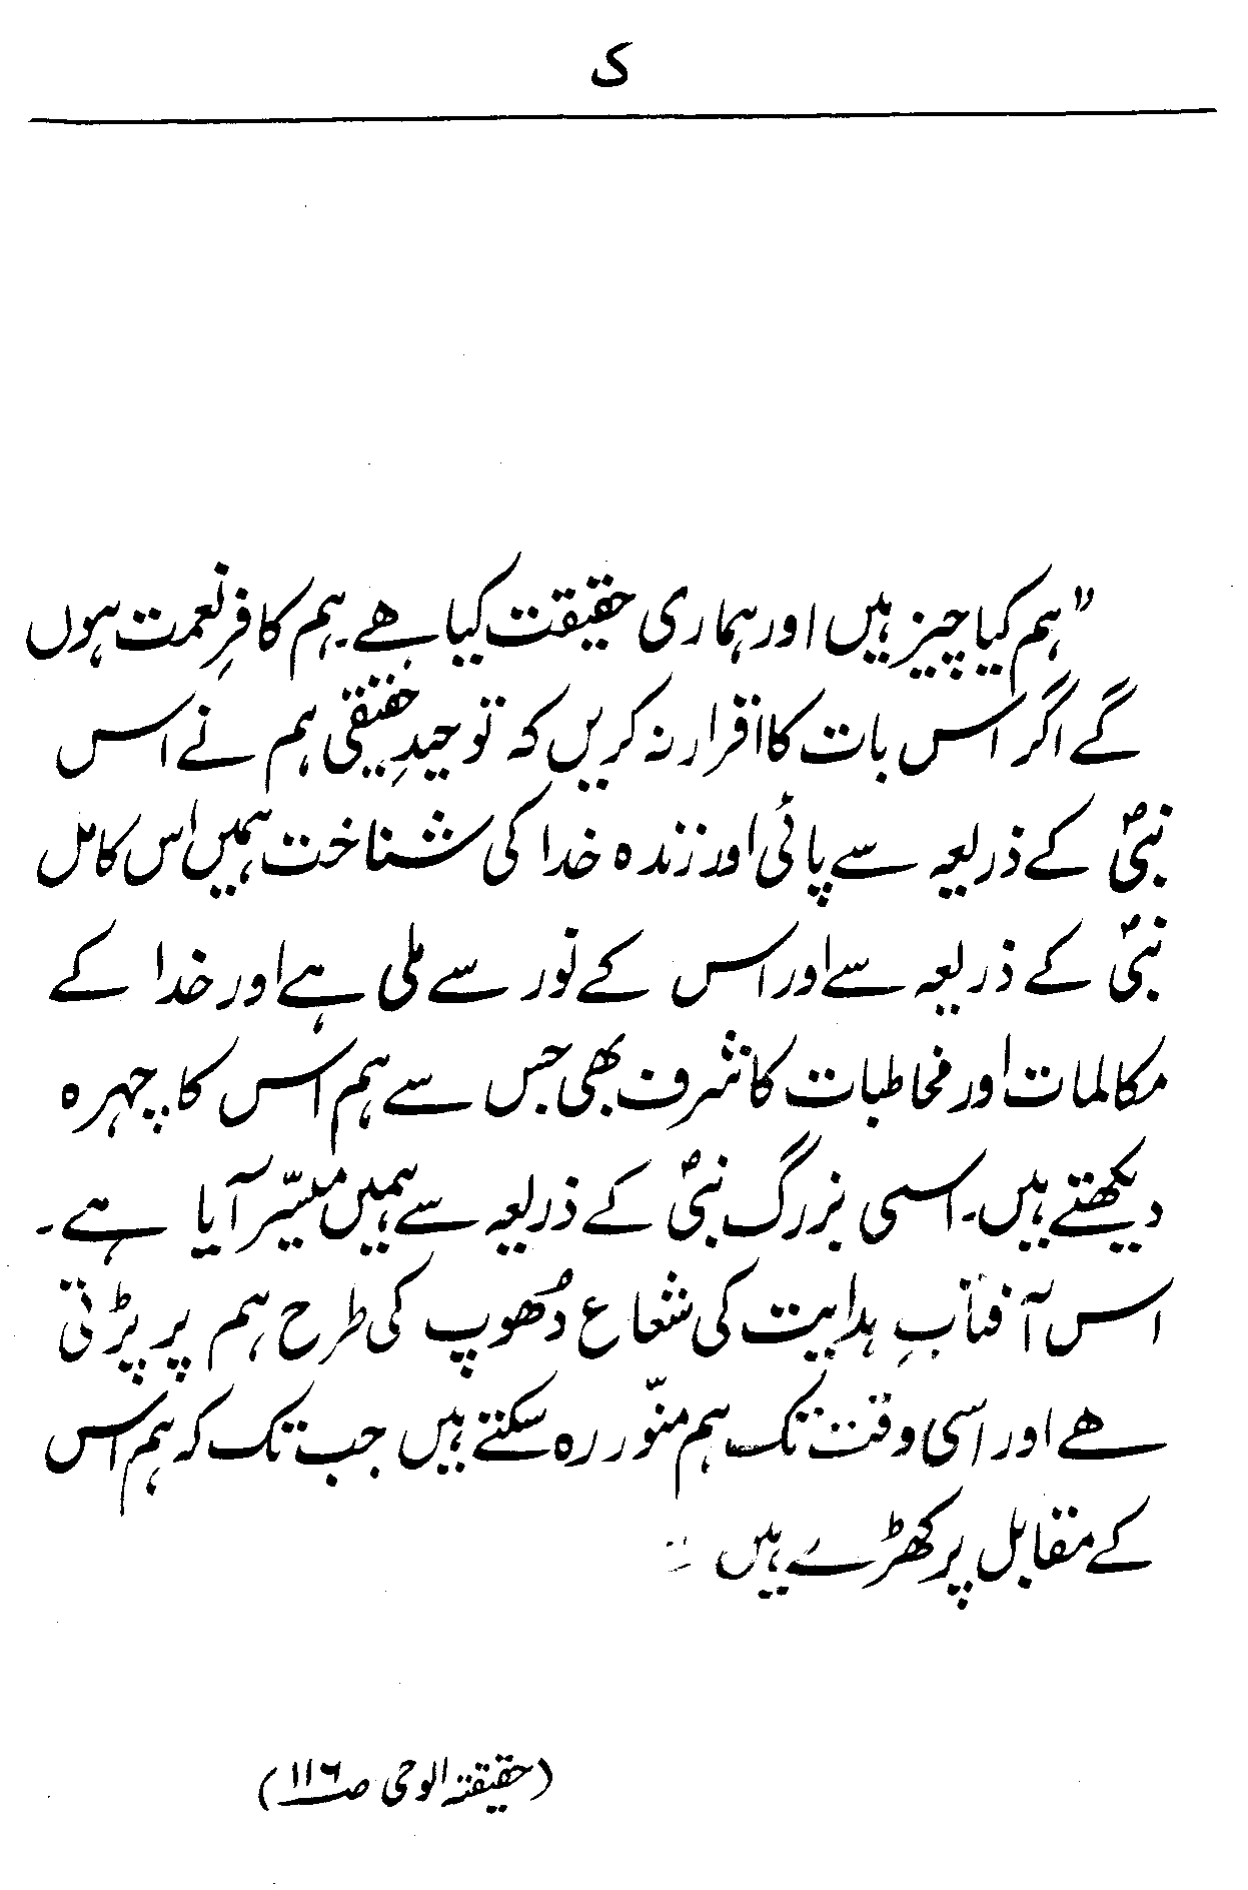 ک
"ہم کیا چیز ہیں اور ہماری حقیقت کیا ہے۔ ہم کافرِ نعمت ہوں
گے اگر اس بات کا اقرار نہ کریں کہ توحیدِ حقیقی ہم نے اس
نبیؐ کے ذریعہ سے پائی اور زندہ خدا کی شناخت ہمیں اس کامل
نبیؐ کے ذریعہ سے اور اس کے نور سے ملی ہے اور خدا کے
مکالمات اور مخاطبات کا شرف بھی جس سے ہم اس کا چہرہ
دیکھتے ہیں۔ اسی بزرگ نبیؐ کے ذریعہ سے ہمیں میسّر آیا ہے۔
اس آفتابِ ہدایت کی شعاع دُھوپ کی طرح ہم پر پڑتی
ہے اور اسی وقت تک ہم منوّر رہ سکتے ہیں جب تک کہ ہم اس
کے مقابل پر کھڑے ہیں
(حقیقتہ الوحی صـ۱۱۶)